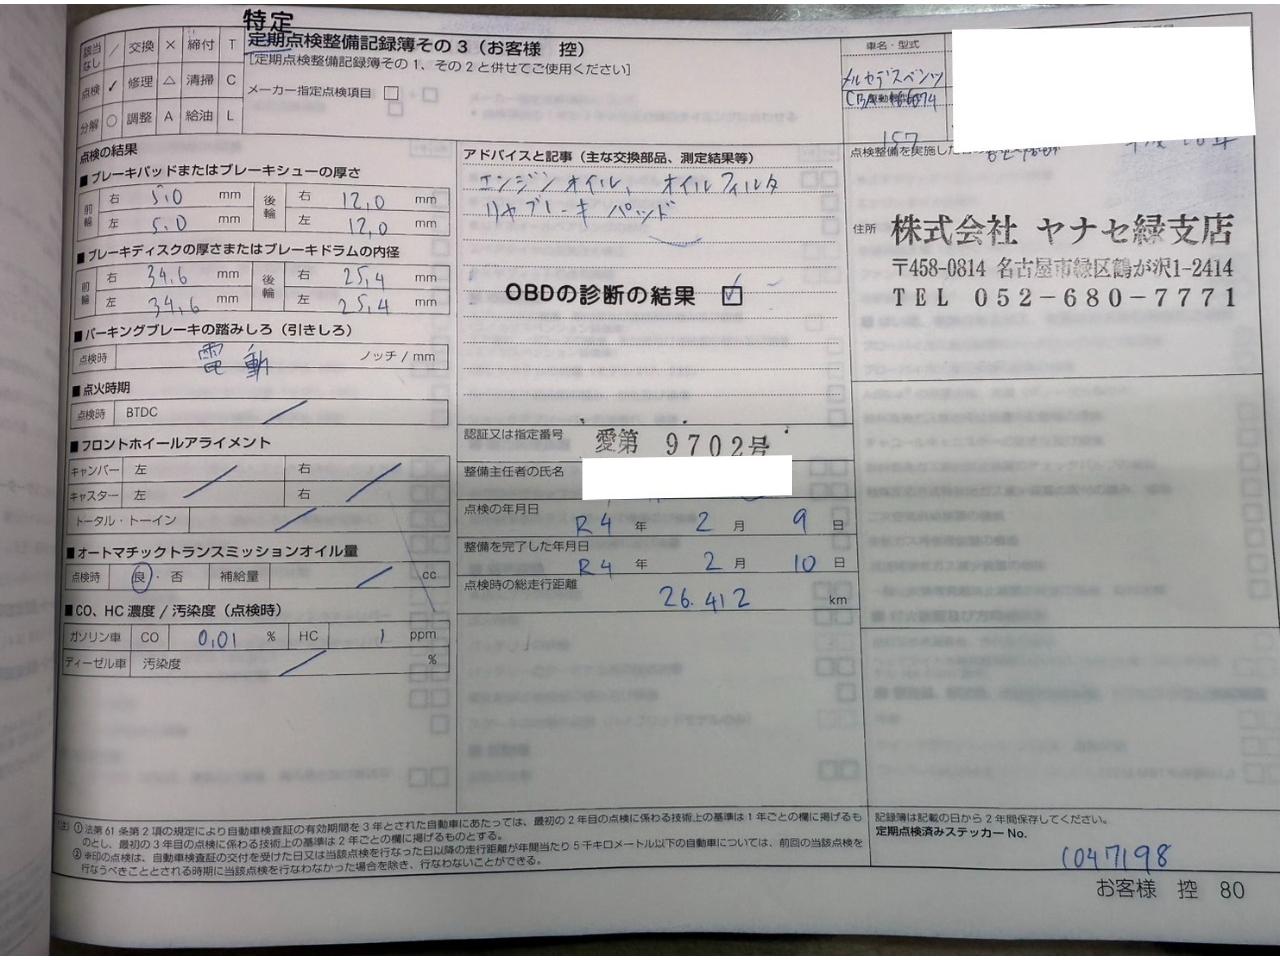 該当なし ／ 交換 × 締付 T
点検 ✓ 修理 △ 清掃 C
分解 ○ 調整 A 給油 L
特定
定期点検整備記録簿その3（お客様 控）
[定期点検整備記録簿その1、その2と併せてご使用ください]
メーカー指定点検項目 □
車名・型式
メルセデスベンツ
157
点検の結果
■ブレーキパッドまたはブレーキシューの厚さ
前輪 右 5.0 mm 後輪 右 12.0 mm
左 5.0 mm 左 12.0 mm
■ブレーキディスクの厚さまたはブレーキドラムの内径
前輪 右 34.6 mm 後輪 右 25.4 mm
左 34.6 mm 左 25.4 mm
■パーキングブレーキの踏みしろ（引きしろ）
点検時 電動 ノッチ / mm
■点火時期
点検時 BTDC
■フロントホイールアライメント
キャンバー 左 右
キャスター 左 右
トータル・トーイン
■オートマチックトランスミッションオイル量
点検時 良・否 補給量 cc
■CO、HC 濃度 / 汚染度（点検時）
ガソリン車 CO 0.01 % HC 1 ppm
ディーゼル車 汚染度 %
アドバイスと記事（主な交換部品、測定結果等）
エンジンオイル、オイルフィルタ
リヤブレーキパッド
OBDの診断の結果 ☑
認証又は指定番号 愛第 9702号
整備主任者の氏名
点検の年月日
R4 年 2 月 9 日
整備を完了した年月日
R4 年 2 月 10 日
点検時の総走行距離
26.412 km
点検整備を実施した
住所 株式会社 ヤナセ緑支店
〒458-0814 名古屋市緑区鶴が沢1-2414
TEL 052-680-7771
①法第61条第2項の規定により自動車検査証の有効期間を3年とされた自動車にあたっては、最初の2年目の点検に係わる技術上の基準は1年ごとの欄に掲げるも
のとし、最初の3年目の点検に係わる技術上の基準は2年ごとの欄に掲げるものとする。
②車印の点検は、自動車検査証の交付を受けた日又は当該点検を行なった日以降の走行距離が年間当たり5千キロメートル以下の自動車については、前回の当該点検を
行なうべきこととされる時期に当該点検を行なわなかった場合を除き、行なわないことができる。
記録簿は記載の日から2年間保存してください。
定期点検済みステッカー No.
1047198
お客様 控 80